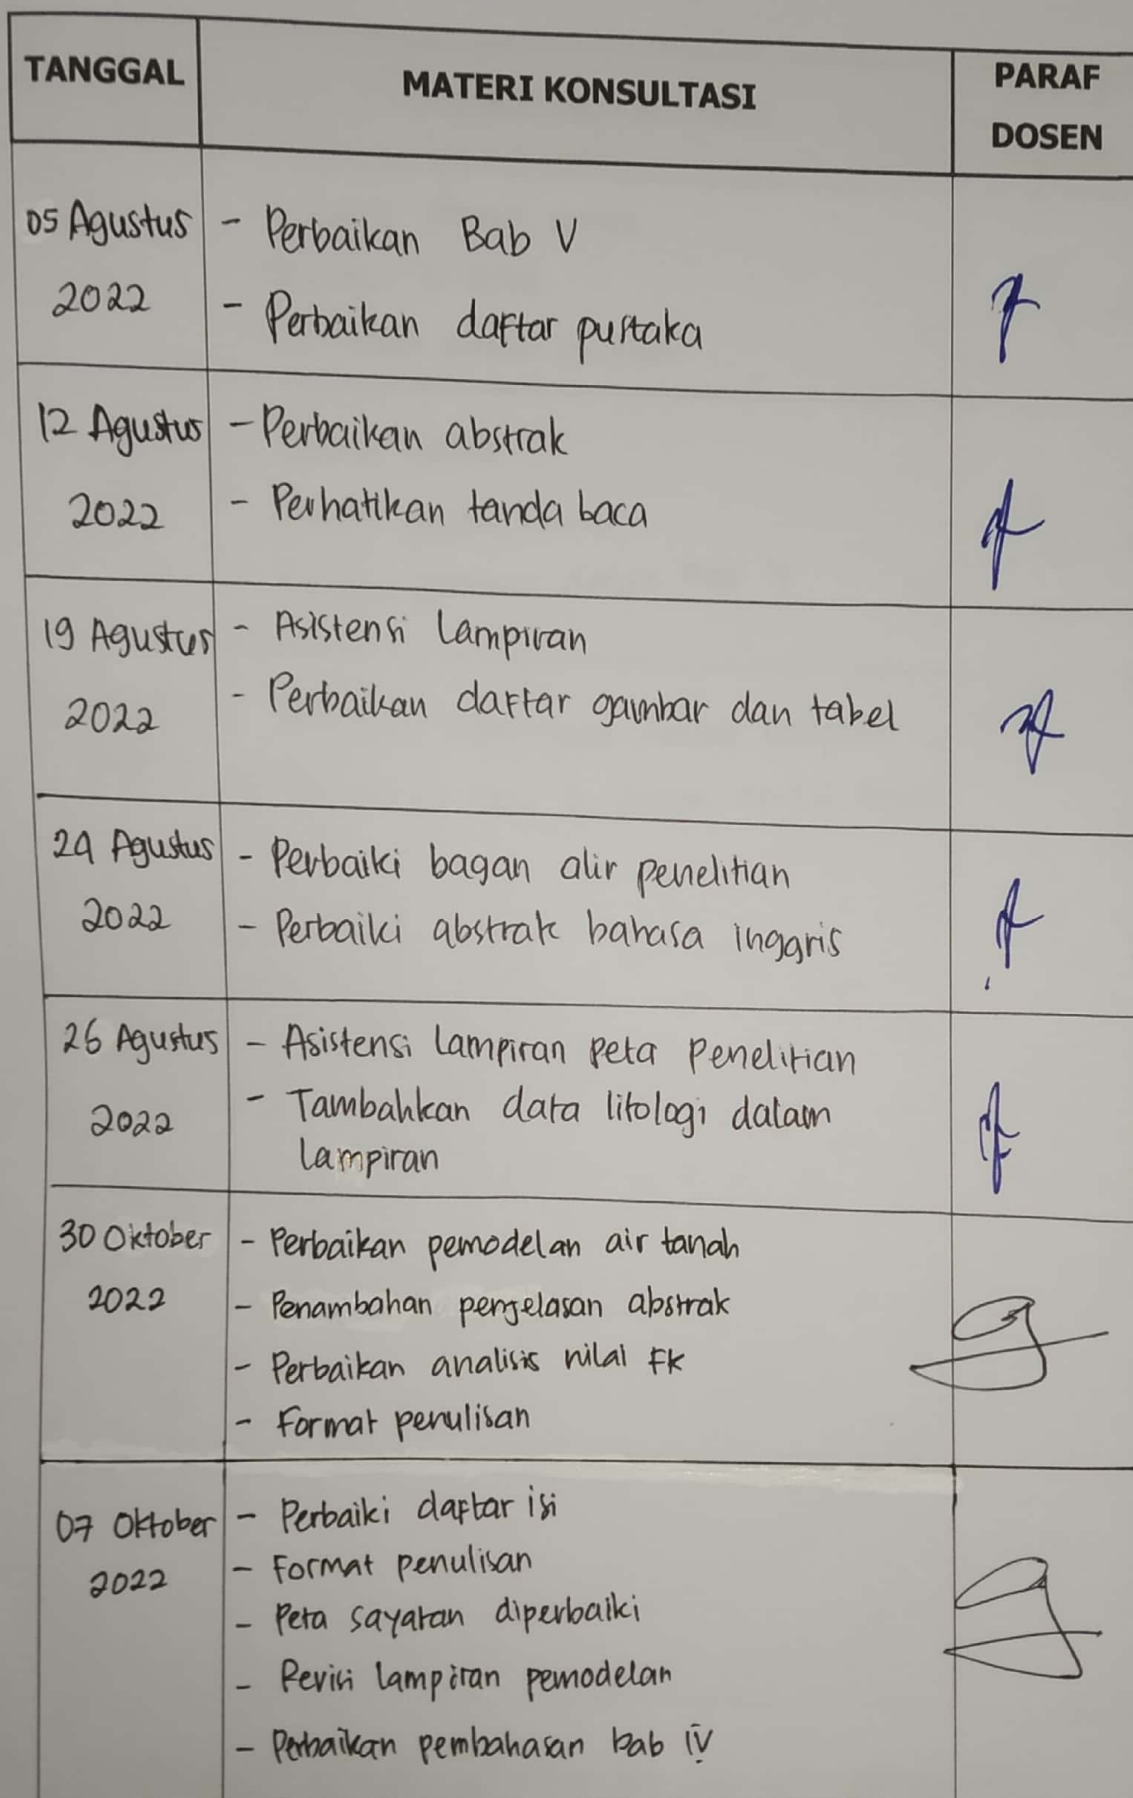 TANGGAL MATERI KONSULTASI PARAF
DOSEN
05 Agustus - Perbaikan Bab V
2022 - Perbaikan daftar pustaka
12 Agustus - Perbaikan abstrak
2022 - Perhatikan tanda baca
19 Agustus - Asistensi Lampiran
2022 - Perbaikan daftar gambar dan tabel
24 Agustus - Perbaiki bagan alir penelitian
2022 - Perbaiki abstrak bahasa inggris
26 Agustus - Asistensi Lampiran peta penelitian
2022 - Tambahkan data litologi dalam
Lampiran
30 Oktober - Perbaikan pemodelan air tanah
2022 - Penambahan penjelasan abstrak
- Perbaikan analisis nilai FK
- Format penulisan
07 Oktober - Perbaiki daftar isi
2022 - Format penulisan
- Peta sayatan diperbaiki
- Revisi lampiran pemodelan
- Perbaikan pembahasan bab IV